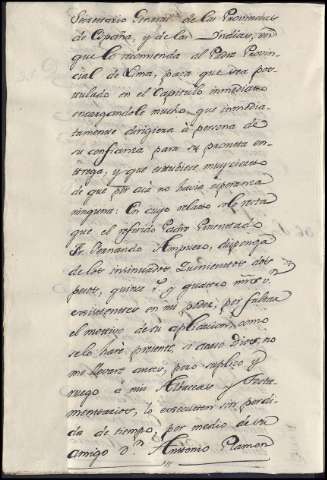 Secretario General de las Provincias
de España, y de las Indias, en
que lo recomienda al Padre Provin-
cial de Lima, para que sea pos-
tulado en el Capitulo inmediato
encargandole mucho que inmedia-
tamente dirigiera à persona de
su confianza para su pronta en-
trega, y que estubiese muy cierto
de que por acà no havia esperanza
ninguna: En cuyo relato solo resta
que el referido Padre Presentado
Fr. Fernando Ampuero, disponga
de los insinuados Quinientos dies
pesos, quince y quatro
existentes en mi poder, por faltar
el motivo de su aplicacion, como
selo harè presente, si antes Dios, no
me llevare antes, pero suplico y
ruego à mis Albaceas y Testa-
mentarios, lo executen sin perdi-
da de tiempo, por medio de su
amigo Dn. Antonio Ramon